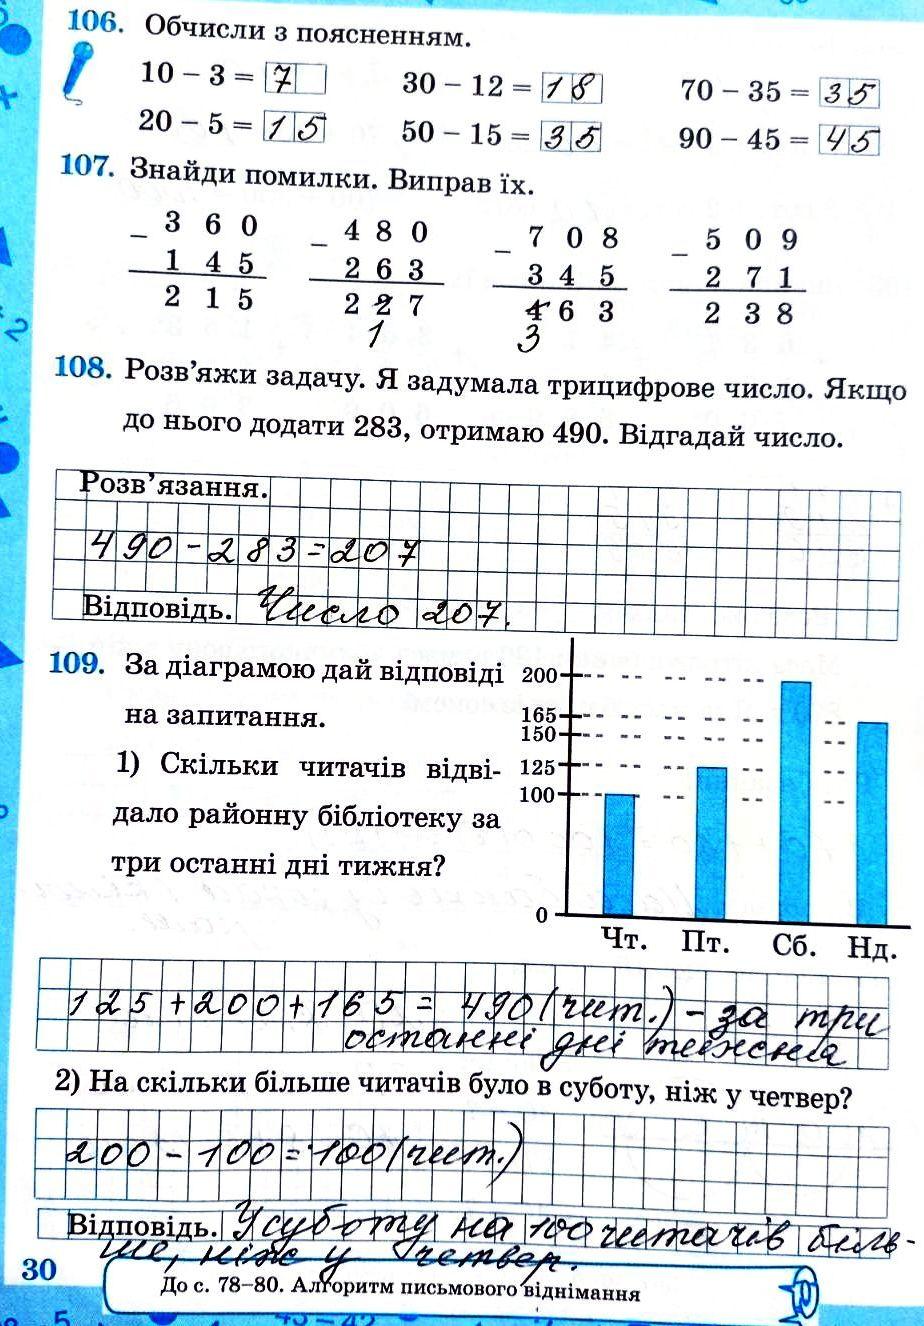 106. Обчисли з поясненням.
10 – 3 = 7 30 – 12 = 18 70 – 35 = 35
20 – 5 = 15 50 – 15 = 35 90 – 45 = 45
107. Знайди помилки. Виправ їх.
– 3 6 0 – 4 8 0 – 7 0 8 – 5 0 9
1 4 5 2 6 3 3 4 5 2 7 1
2 1 5 2 2 7 4 6 3 2 3 8
1 3
108. Розв’яжи задачу. Я задумала трицифрове число. Якщо
до нього додати 283, отримаю 490. Відгадай число.
Розв’язання.
490 – 283 = 207
Відповідь. Число 207.
109. За діаграмою дай відповіді
на запитання.
1) Скільки читачів відві-
дало районну бібліотеку за
три останні дні тижня?
200
165
150
125
100
0
Чт. Пт. Сб. Нд.
125 + 200 + 165 = 490 (чит.) – за три
останні дні тижня
2) На скільки більше читачів було в суботу, ніж у четвер?
200 – 100 = 100 (чит.)
Відповідь. У суботу на 100 читачів біль-
ше, ніж у четвер.
30
До с. 78–80. Алгоритм письмового віднімання